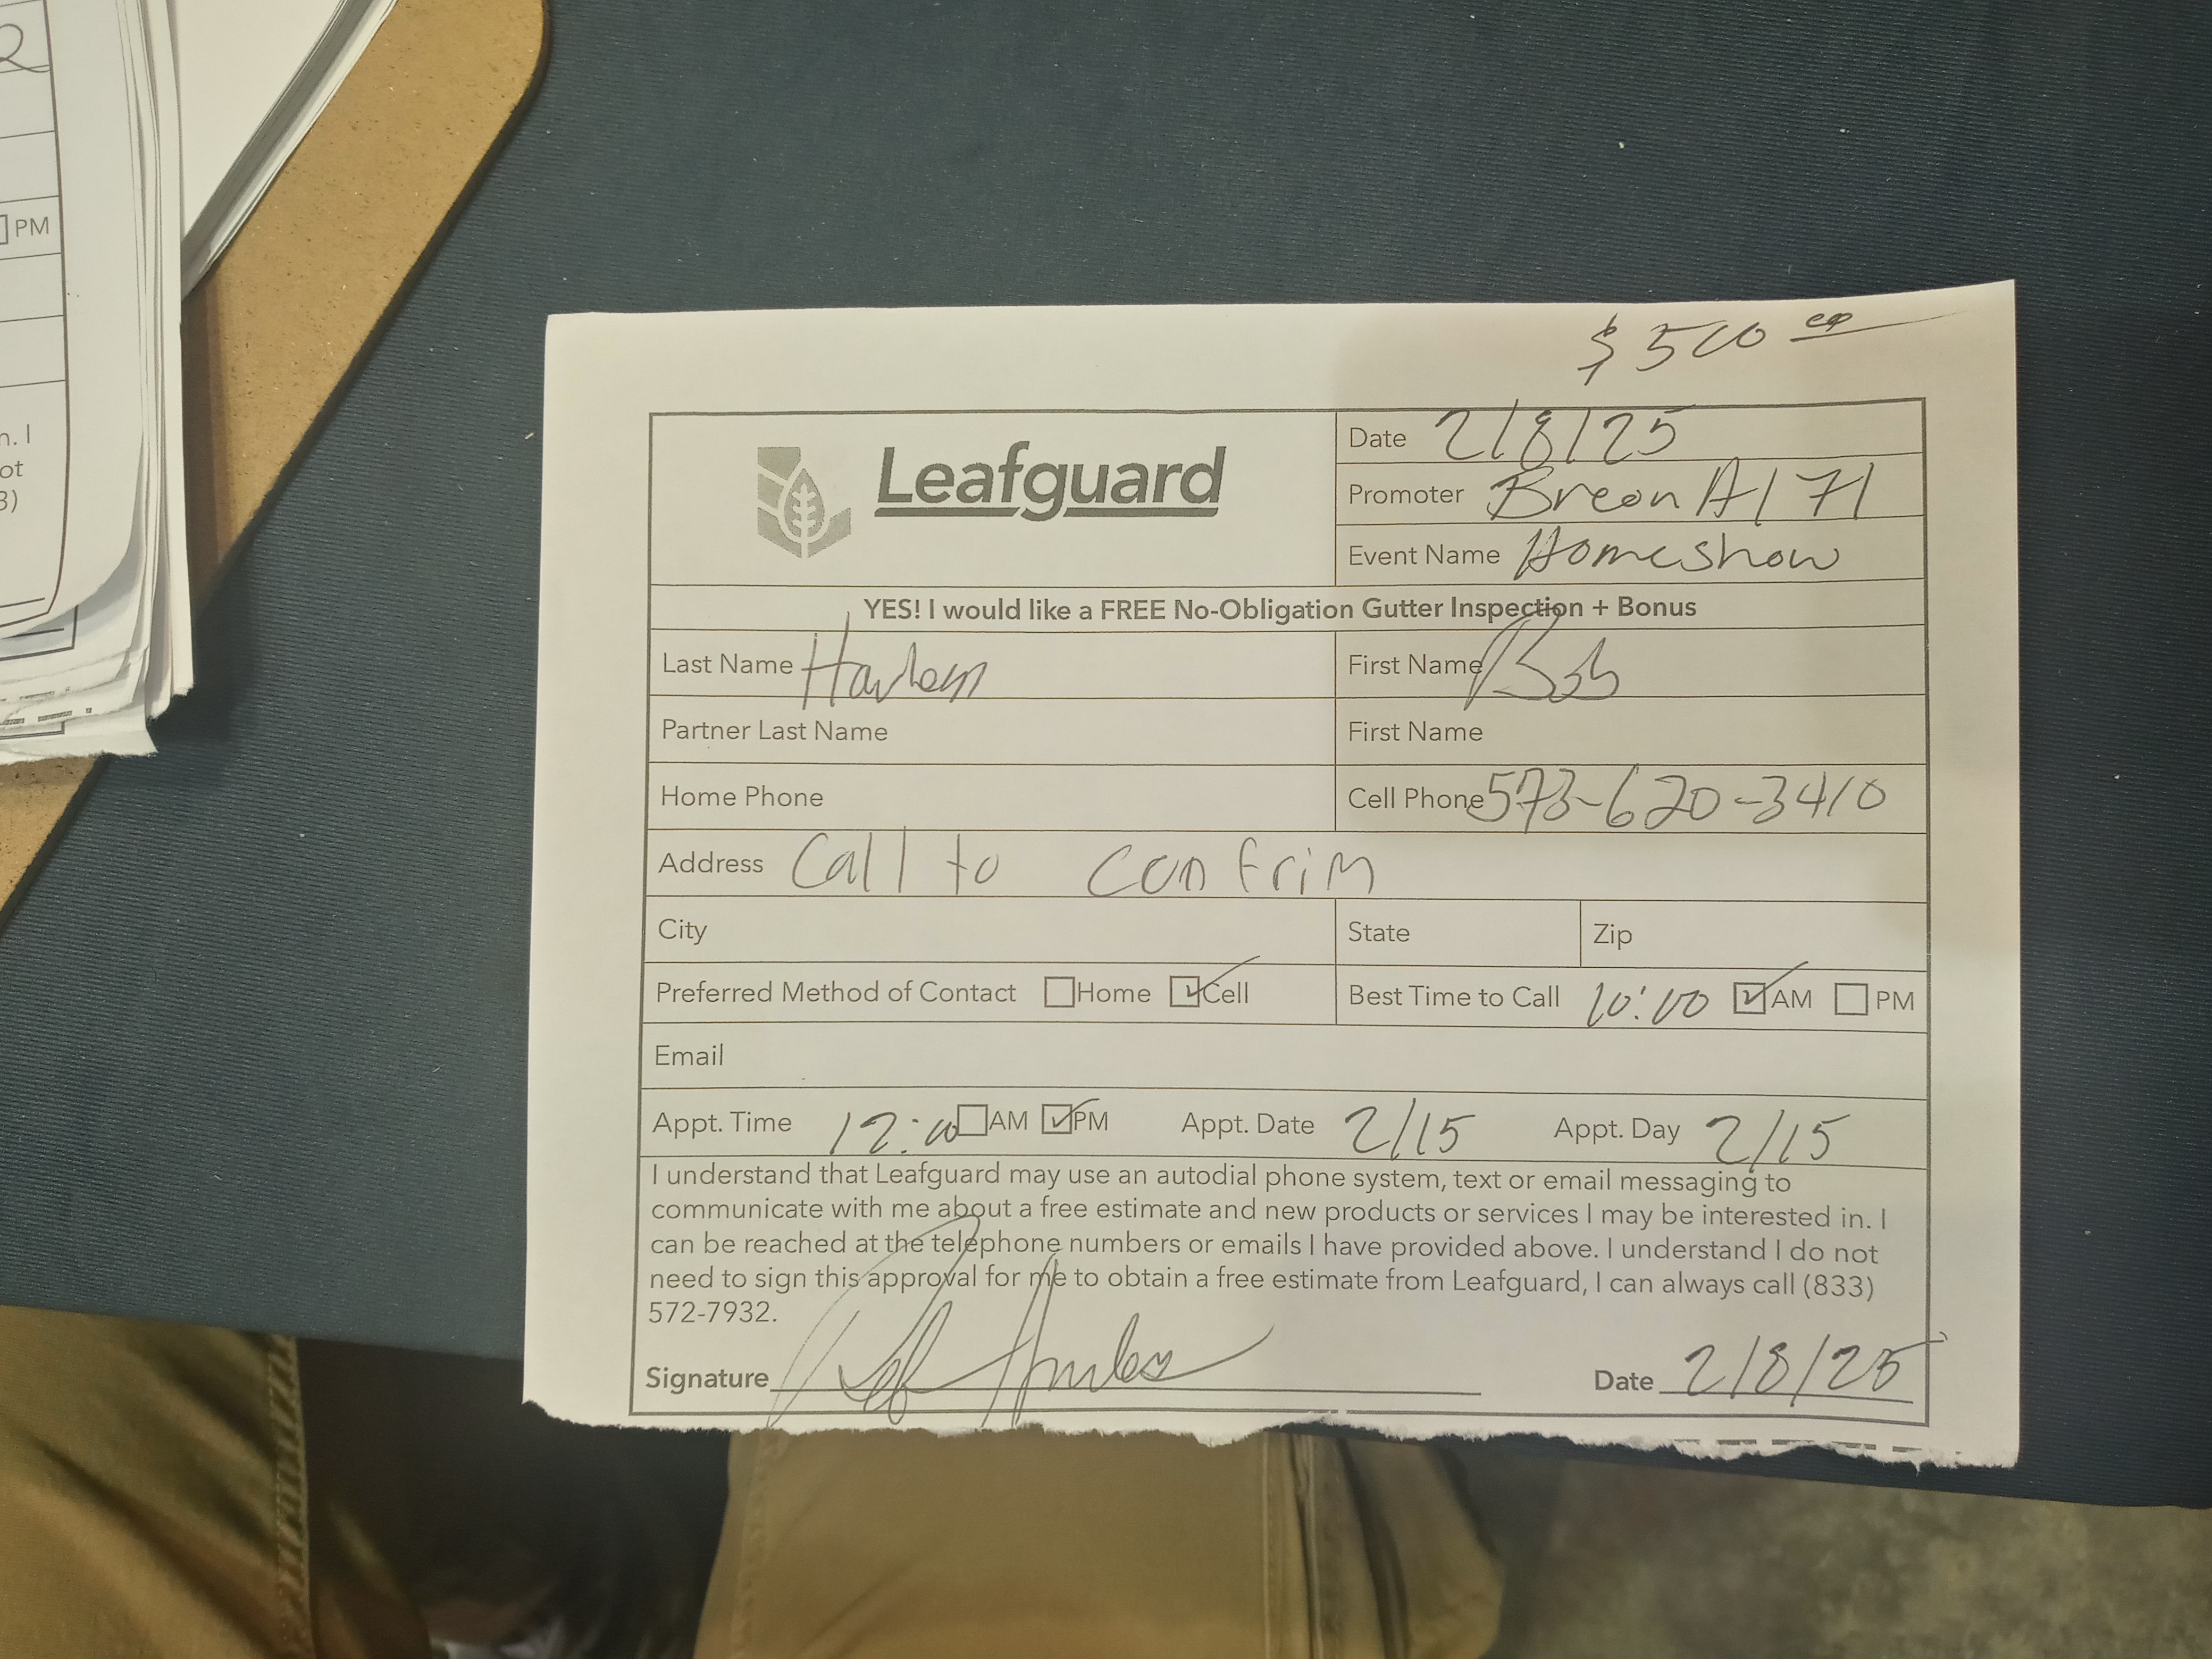 $ 500
Leafguard
Date 2/8/25
Promoter Breon H171
Event Name Homeshow
YES! I would like a FREE No-Obligation Gutter Inspection + Bonus
Last Name First Name Bob
Partner Last Name First Name
Home Phone Cell Phone 573-620-3410
Address Call to Confrim
City State Zip
Preferred Method of Contact Home Cell Best Time to Call 10:00 AM PM
Email
Appt. Time 12:00 AM PM Appt. Date 2/15 Appt. Day 2/15
I understand that Leafguard may use an autodial phone system, text or email messaging to
communicate with me about a free estimate and new products or services I may be interested in. I
can be reached at the telephone numbers or emails I have provided above. I understand I do not
need to sign this approval for me to obtain a free estimate from Leafguard, I can always call (833)
572-7932.
Signature Date 2/8/25
PM
n. I
ot
3)